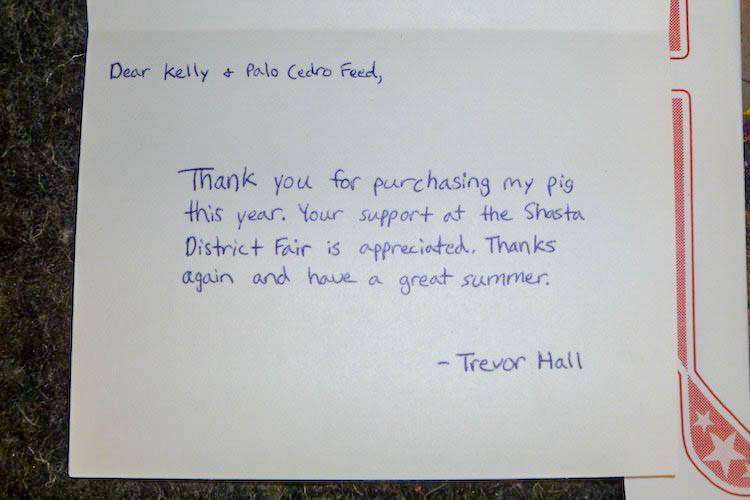 Dear Kelly + Palo Cedro Feed,
Thank you for purchasing my pig
this year. Your support at the Shasta
District Fair is appreciated. Thanks
again and have a great summer.
- Trevor Hall